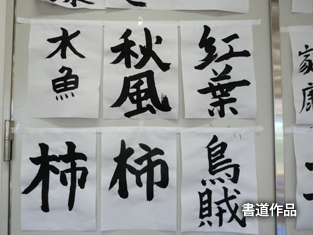 水魚
秋風
紅葉
家康
柿
柿
烏賊
書道作品